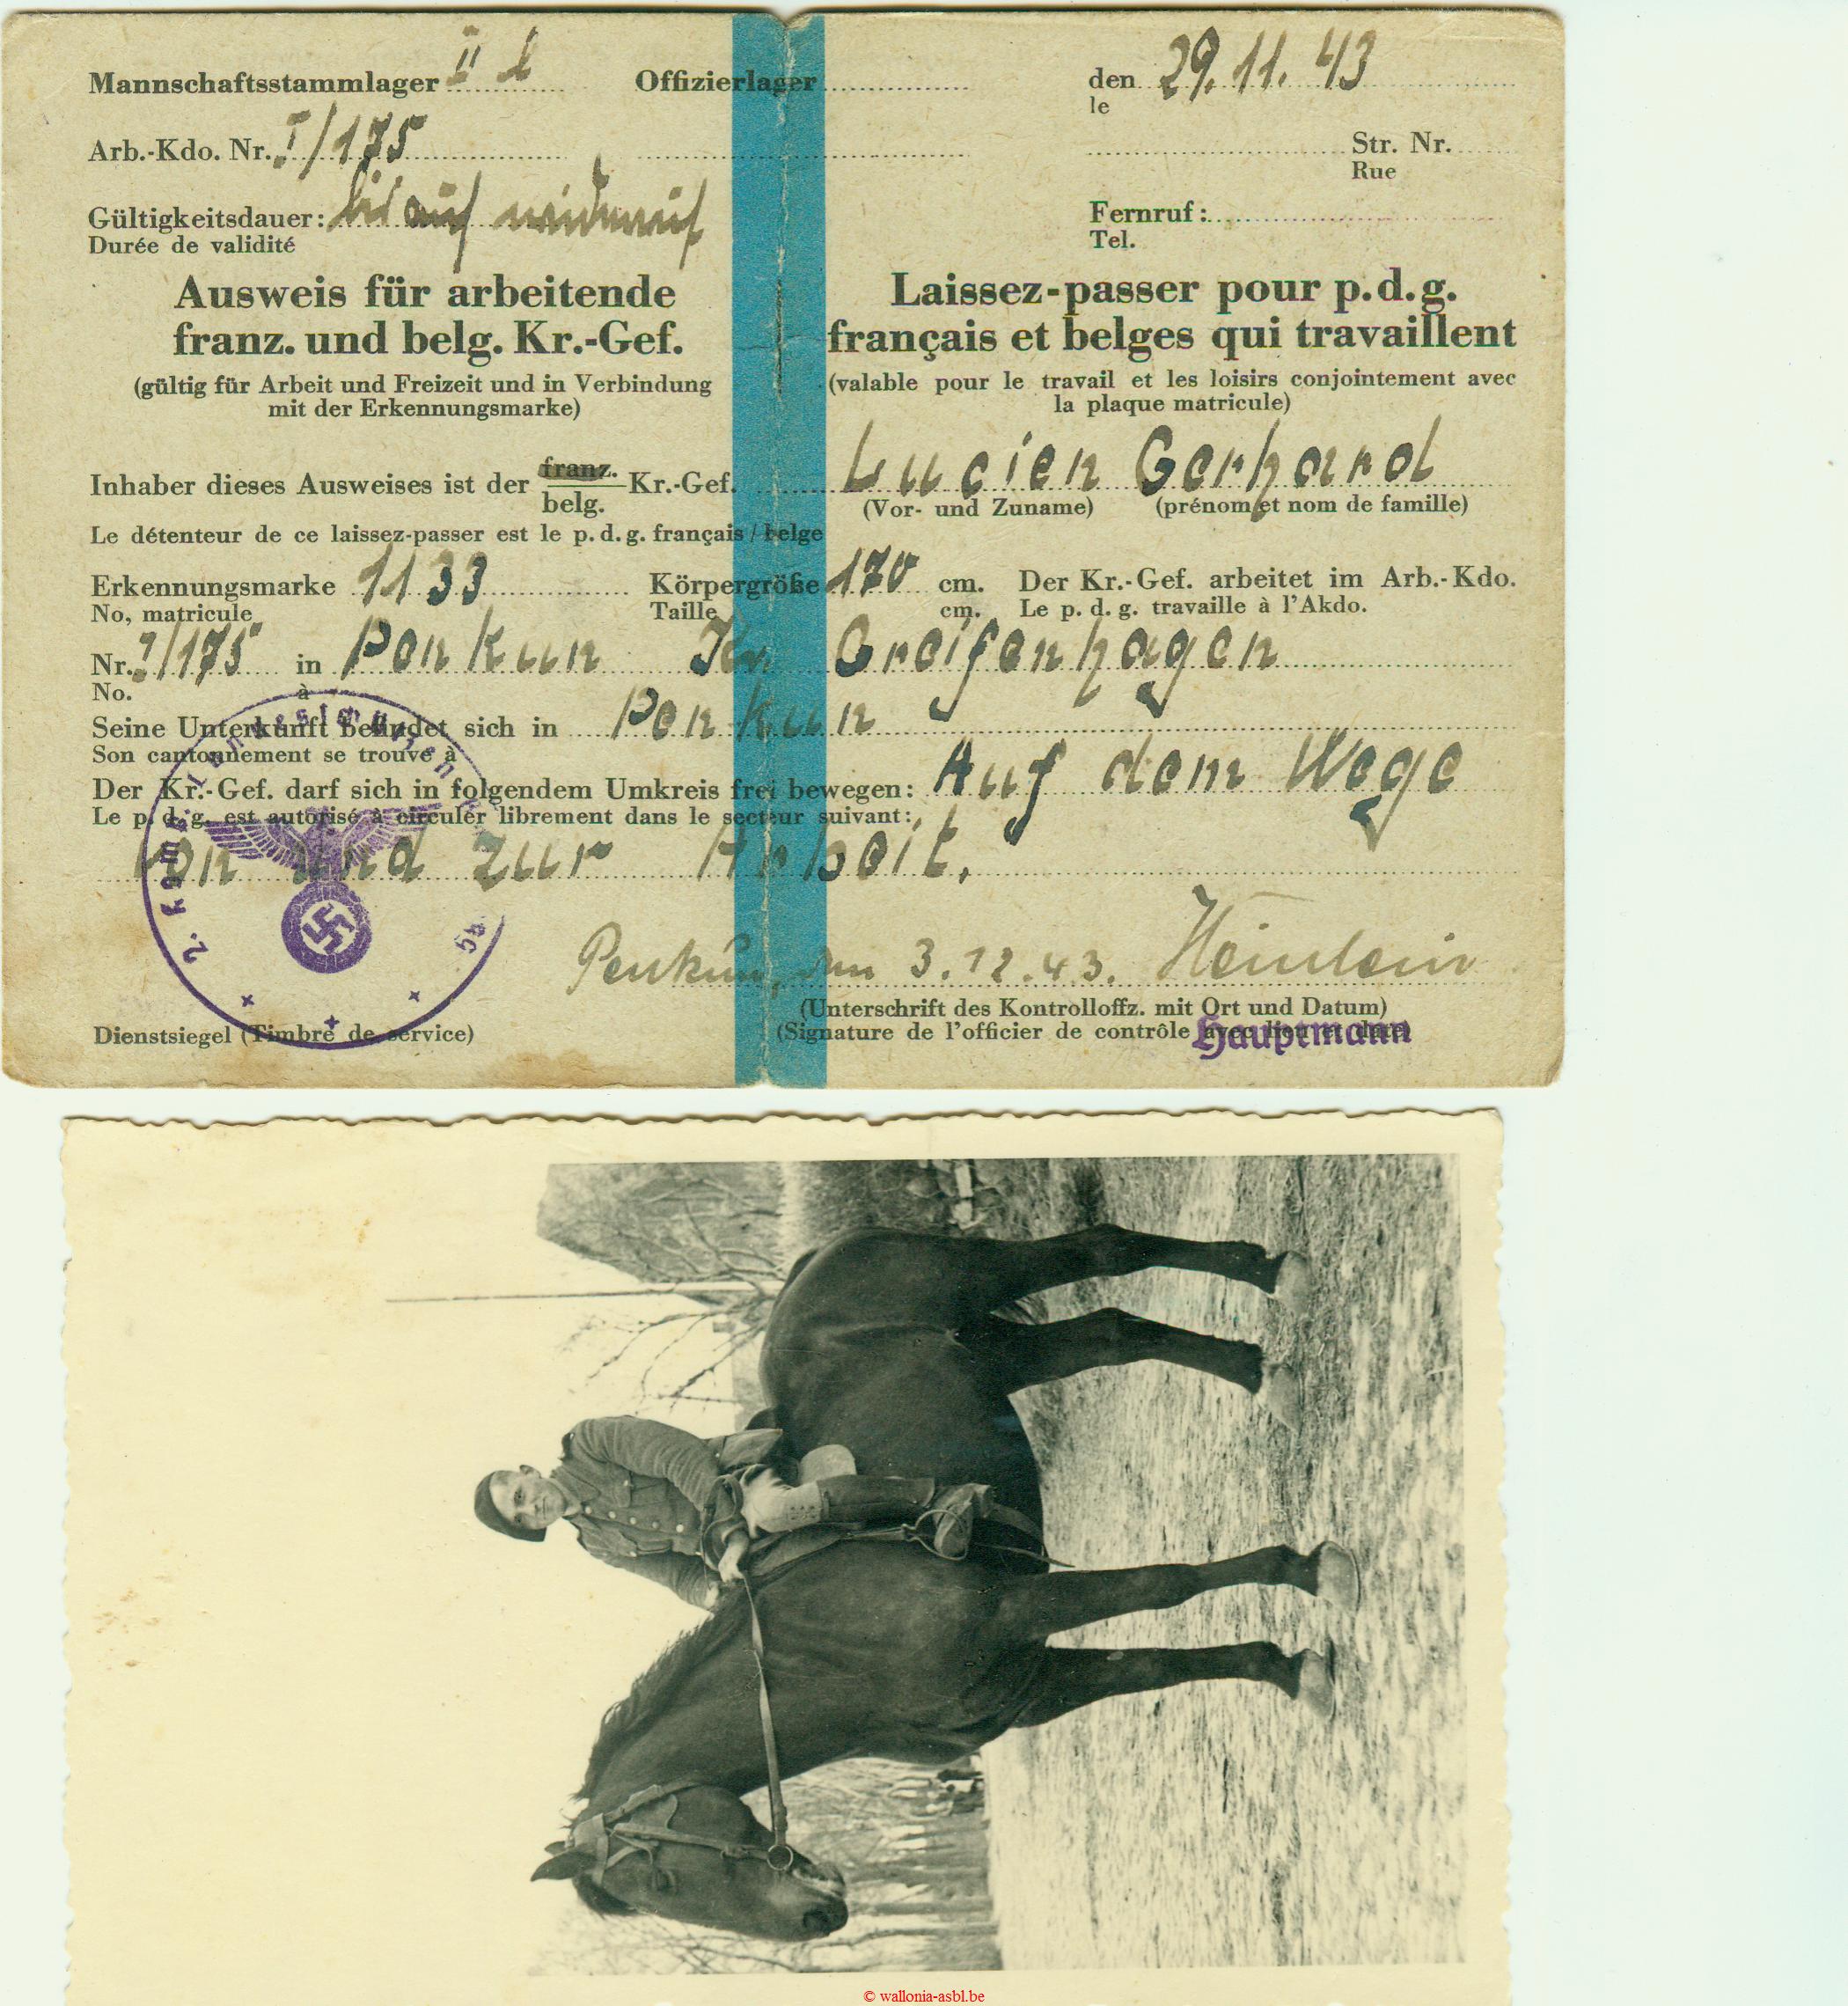 Mannschaftsstammlager II Offizierlager den 29.11.43
le
Arb.-Kdo. Nr. I/175 Str. Nr.
Rue
Gültigkeitsdauer: bis auf widerruf Fernruf:
Durée de validité Tel.
Ausweis für arbeitende
franz. und belg. Kr.-Gef.
(gültig für Arbeit und Freizeit und in Verbindung
mit der Erkennungsmarke)
Laissez-passer pour p.d.g.
français et belges qui travaillent
(valable pour le travail et les loisirs conjointement avec
la plaque matricule)
Inhaber dieses Ausweises ist der franz. belg. Kr.-Gef. Lucien Gerhard
(Vor- und Zuname) (prénom et nom de famille)
Le détenteur de ce laissez-passer est le p.d.g. français / belge
Erkennungsmarke 1133 Körpergröße 170 cm. Der Kr.-Gef. arbeitet im Arb.-Kdo.
No, matricule Taille cm. Le p.d.g. travaille à l'Akdo.
Nr. I/175 in Penkun Kr. Greifenhagen
No. à
Seine Unterkunft befindet sich in Penkun
Son cantonnement se trouve à
Der Kr.-Gef. darf sich in folgendem Umkreis frei bewegen: Auf dem Wege
Le p.d.g. est autorisé à circuler librement dans le secteur suivant:
von und zur Arbeit.
Penkun, den 3.12.43. Heinlein
(Unterschrift des Kontrolloffz. mit Ort und Datum)
Dienstsiegel (Timbre de service) (Signature de l'officier de contrôle avec lieu et date)
Hauptmann
2. Komp.
© wallonia-asbl.be